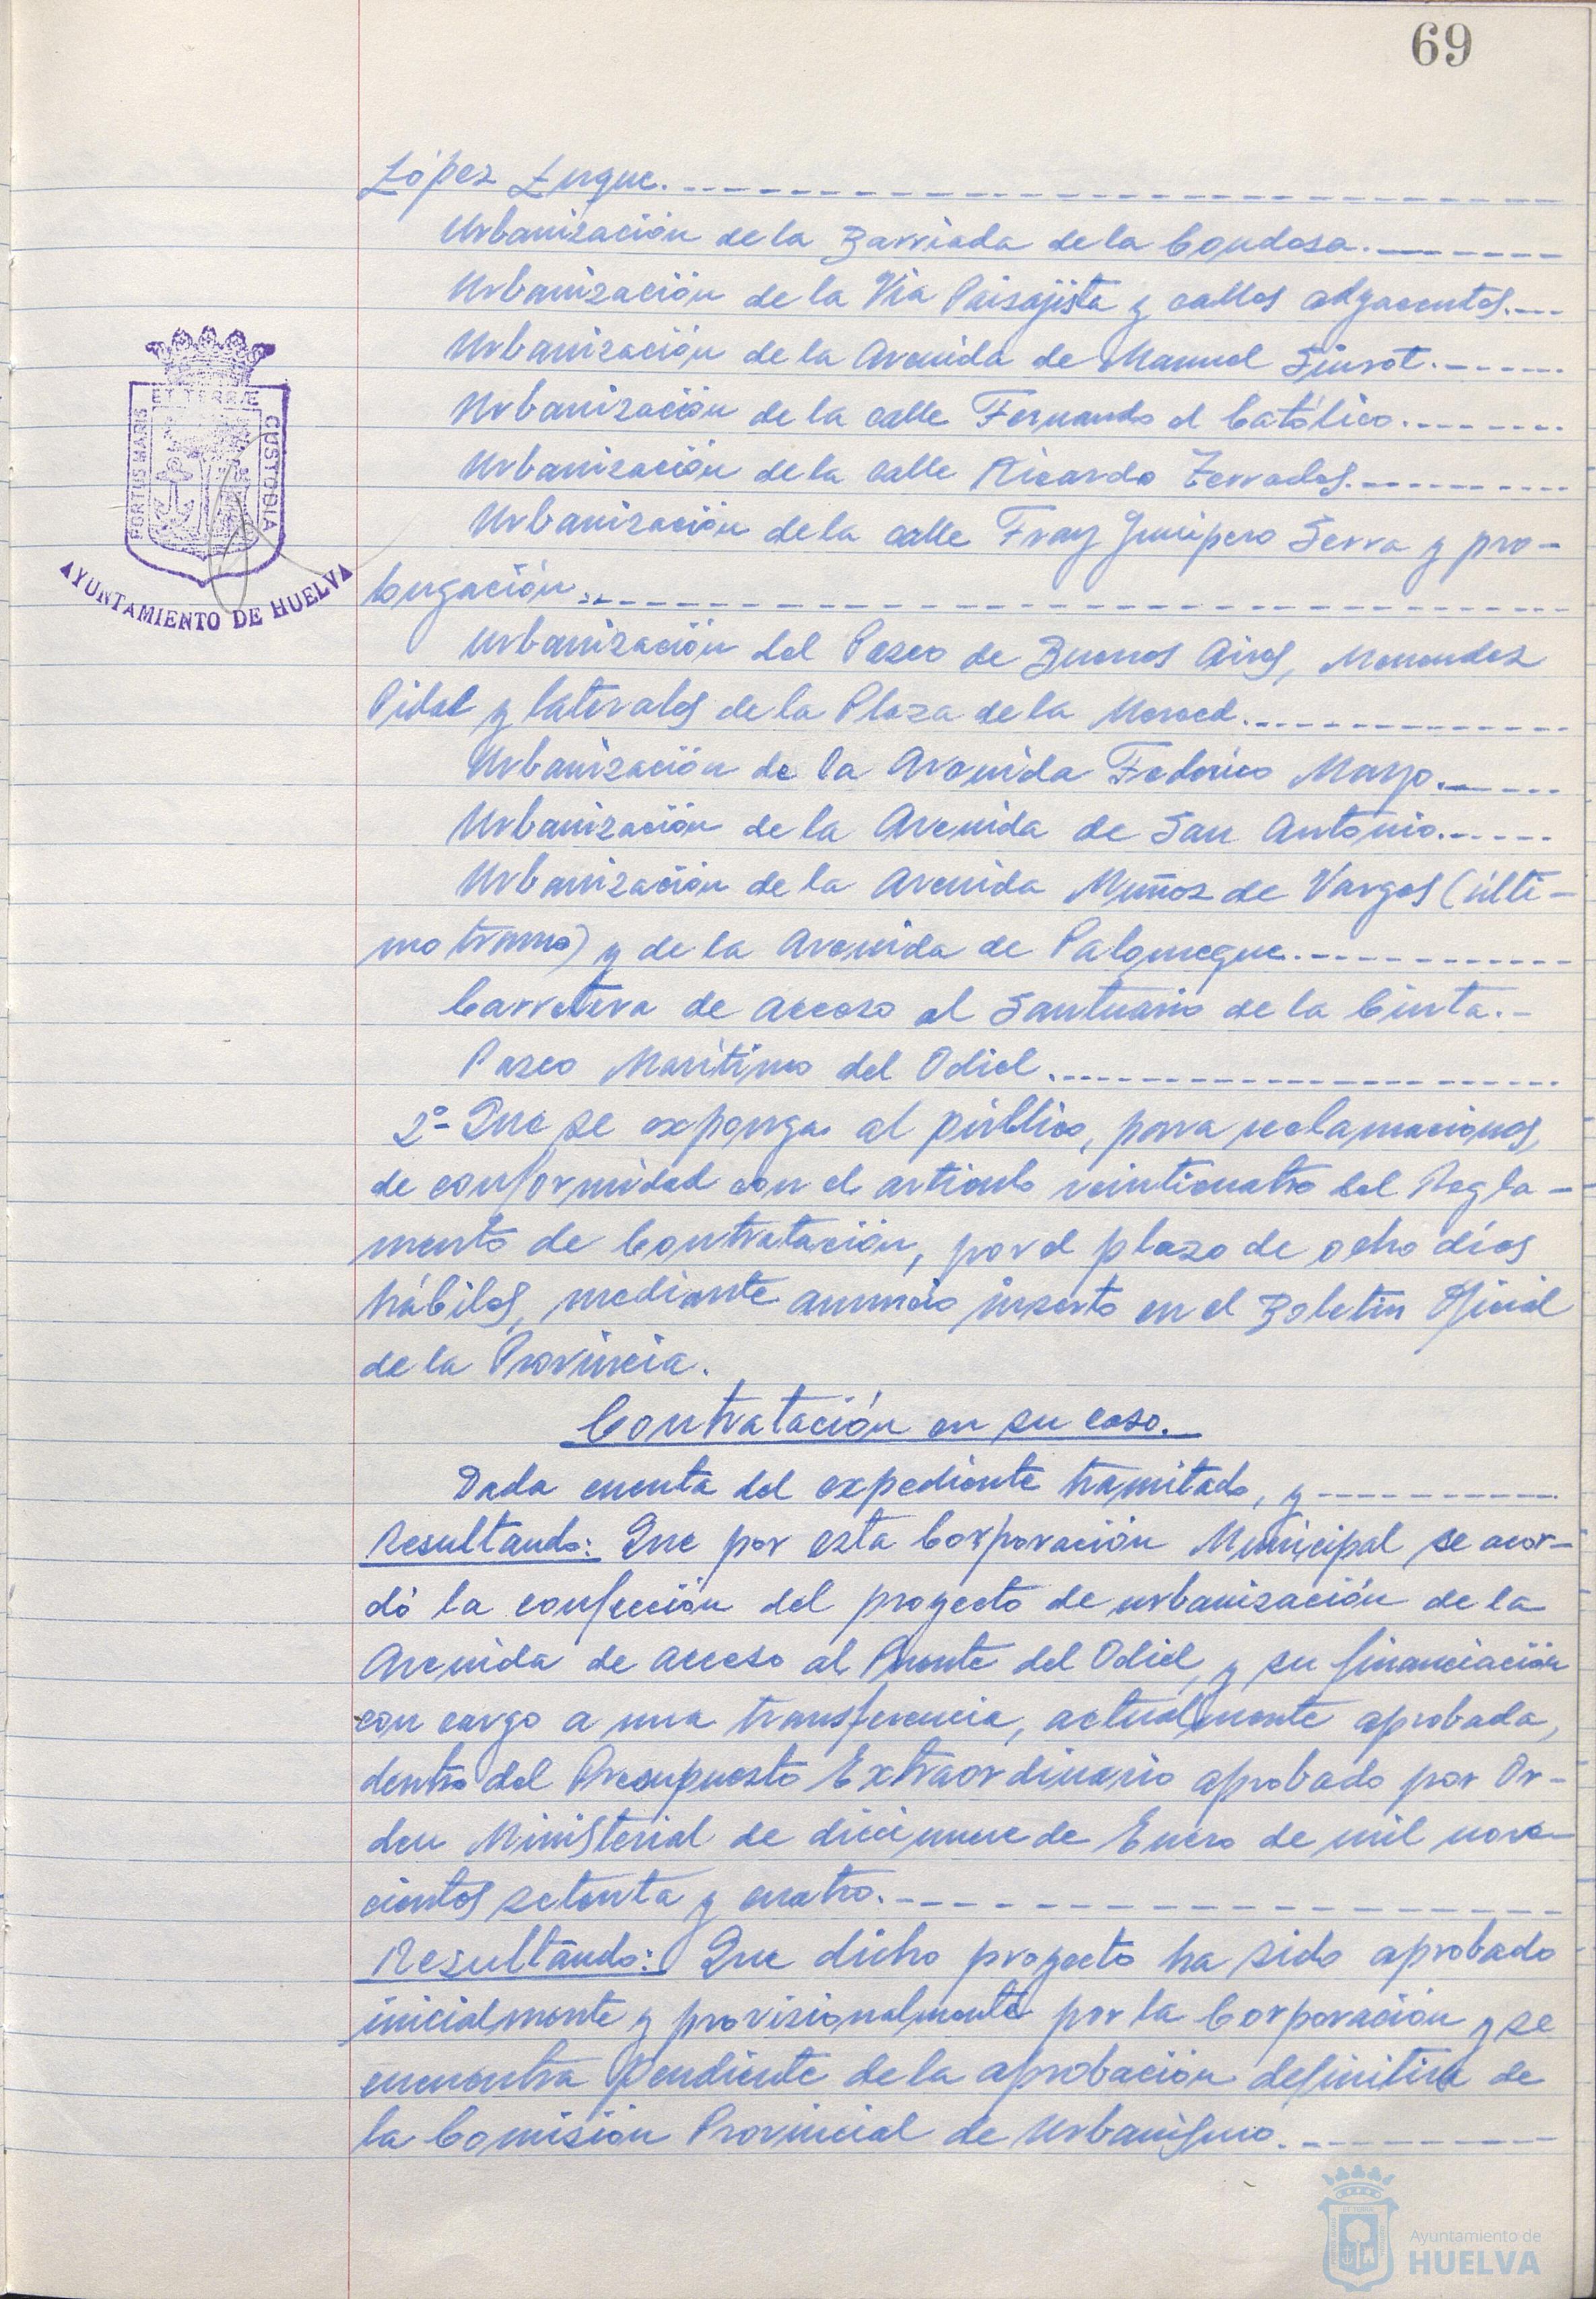 69
López Luque.
Urbanización de la Barriada de la Condesa.
Urbanización de la Vía Paisajista y calles adyacentes.
Urbanización de la Avenida de Manuel Siurot.
Urbanización de la calle Fernando el Católico.
Urbanización de la calle Ricardo Terrades.
Urbanización de la calle Fray Junípero Serra y pro-
longación.
Urbanización del Paseo de Buenos Aires, Menendez
Pidal y laterales de la Plaza de la Merced.
Urbanización de la Avenida Federico Mayo.
Urbanización de la Avenida de San Antonio.
Urbanización de la Avenida Muñoz de Vargas (últi-
mo tramo) y de la Avenida de Palomeque.
Carretera de acceso al Santuario de la Cinta.-
Paseo Marítimo del Odiel.
2º- Que se exponga al público, para reclamaciones,
de conformidad con el artículo veinticuatro del Regla-
mento de Contratación, por el plazo de ocho días
hábiles, mediante anuncio inserto en el Boletín Oficial
de la Provincia.
Contratación en su caso.
Dada cuenta del expediente tramitado, y
Resultando: Que por esta Corporación Municipal se acor-
dó la confección del proyecto de urbanización de la
Avenida de acceso al Puente del Odiel, y su financiación
con cargo a una transferencia, actualmente aprobada,
dentro del Presupuesto Extraordinario aprobado por Or-
den Ministerial de diecinueve de Enero de mil nove-
cientos setenta y cuatro.
Resultando: Que dicho proyecto ha sido aprobado
inicialmente y provisionalmente por la Corporación y se
encuentra pendiente de la aprobación definitiva de
la Comisión Provincial de Urbanismo.
PORTUS MARIS
ET TERRÆ
CUSTODIA
AYUNTAMIENTO DE HUELVA
Ayuntamiento de
HUELVA